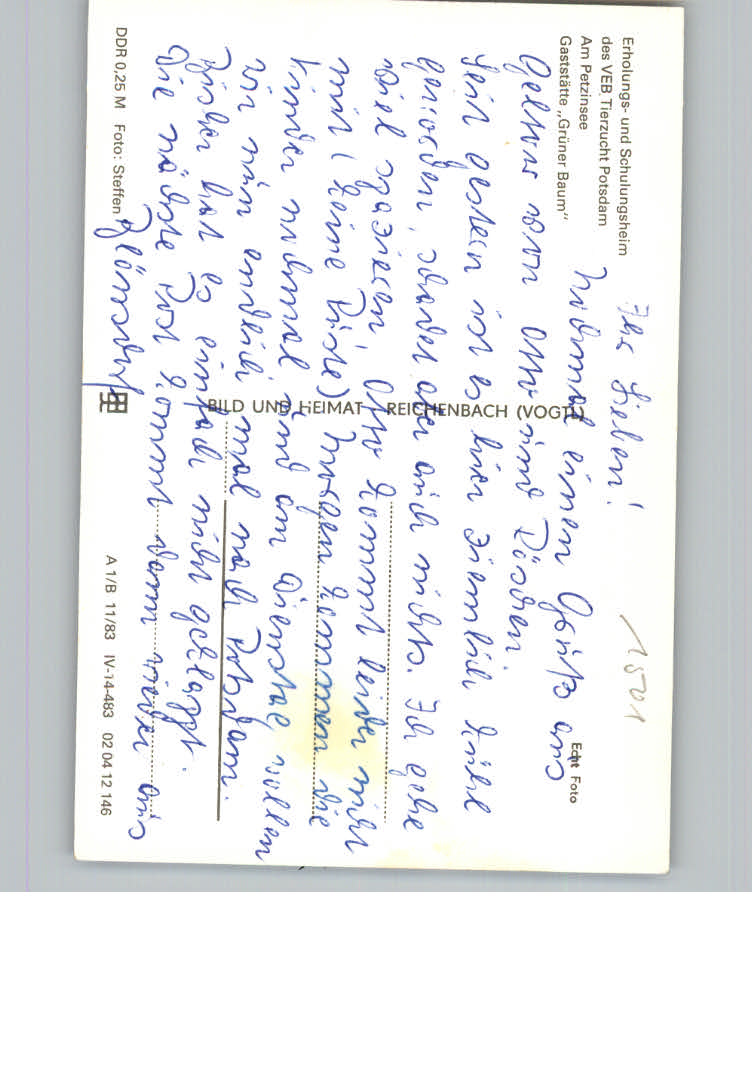 Erholungs- und Schulungsheim
des VEB Tierzucht Potsdam
Am Petzinsee
Gaststätte „Grüner Baum"
Ihr Lieben!
Nochmal einen Gruß aus
Geltow von Otto und Röschen.
Seit gestern ist es hier ziemlich kühl
geworden, schadet aber auch nichts. Ich gehe
viel spazieren, Otto kommt leider nicht
mit (keine Puste) Morgen kommen die
Kinder nochmal und am Dienstag wollen
wir nun endlich mal nach Potsdam.
Bisher hat es einfach nicht geklappt.
Die nächste Post kommt dann wieder aus
15701
Echt Foto
BILD UND HEIMAT REICHENBACH (VOGTL)
DDR 0,25 M Foto: Steffen
A 1/B 11/83 IV-14-483 02 04 12 146